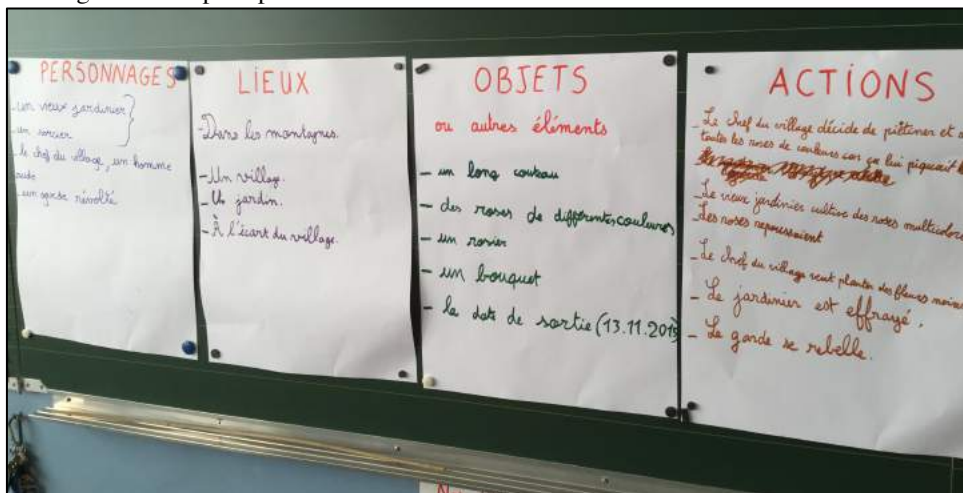 PERSONNAGES
- un vieux jardinier
- un sorcier
- le chef du village, un homme
- un garde révolté
LIEUX
- Dans les montagnes.
- Un village.
- Un jardin.
- À l'écart du village.
OBJETS
ou autres éléments
- un long couteau
- des roses de différentes couleurs
- un rosier
- un bouquet
- la date de sortie (13.11.2015)
ACTIONS
- Le chef du village décide de piétiner et
toutes les roses de couleurs car ça lui piquait
- Le vieux jardinier cultive des roses multicolores
- Les roses repoussaient
- Le chef du village veut planter des fleurs noires
- Le jardinier est effrayé.
- Le garde se rebelle.